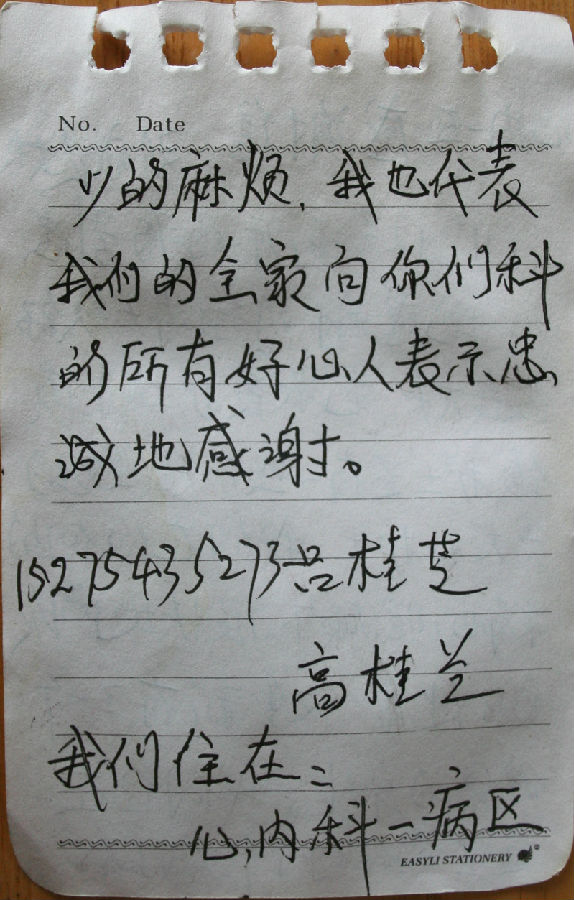 No. Date
少的麻烦,我也代表
我们的全家向你们科
的所有好心人表示忠
诚地感谢。
15275435273吕桂芝
高桂兰
我们住在:
心,内科一病区
EASYLI STATIONERY